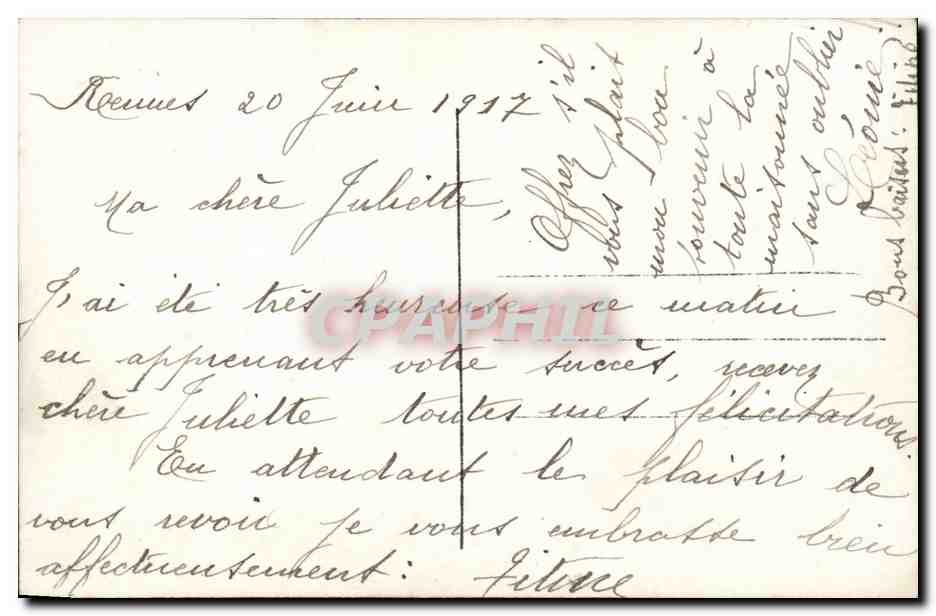 Rennes 20 Juin 1917
Ma chère Juliette,
J'ai été très heureuse ce matin
en apprenant votre succès, recevez
chère Juliette toutes mes félicitations.
En attendant le plaisir de
vous revoir je vous embrasse bien
affectueusement : Titine
Offrez s'il
vous plait
mon bon
souvenir à
toute la
maisonnée
sans oublier
Léonie!!
Bons baisers! Titine
CPAPHIL